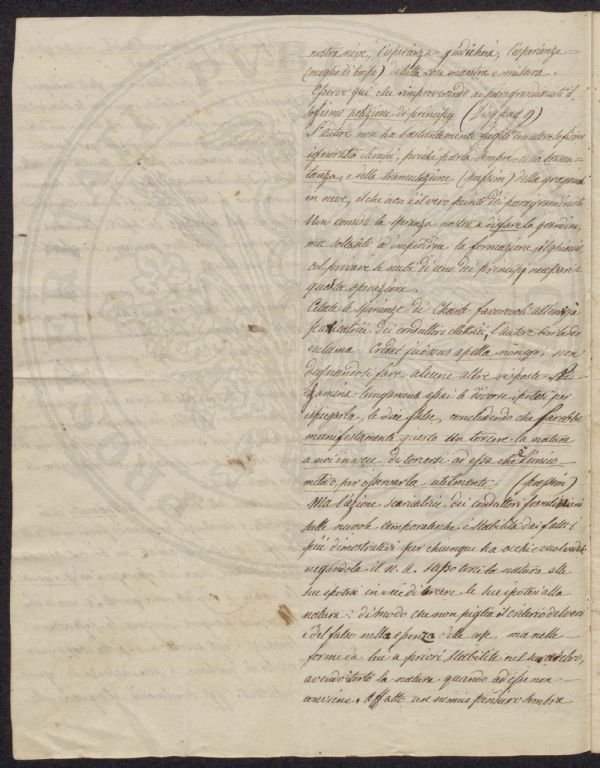 nostra neve, l'esperienza giudicherà, l'esperienza
(meglio di tempo) della cosa maestra e misura.
Osservo qui che rimproverando ai paragrandinisti il
sofisma petizione di principj (Disp. pag 9)
l'autore non ha bastantemente fuggito un altro sofisma
ignoratio elenchi, poichè parla sempre della tramu
tanza, e della tramutazione (passim) della gragnuola
in neve, il che non è il vero punto dei paragrandinisti
Non consiste la speranza nostra a disfare la grandine,
ma soltanto a impedirne la formazione,
col privare le nubi di uno dei principj necessarj a
questa operazione.
Citate le sperienze di Charles favorevoli all'energia
scaricatrice dei conduttori elettrici, l'autore beffardo
esclama Credat judaeus apella non ego, non
degnandosi fare alcune altre risposte.
Esamina lungamente assai le diverse ipotesi per
ispiegarla, le dice false, concludendo che sarebbe
manifestamente questo un torcere la natura
a noi in vece di torcersi ad essa che è l'unico
metodo per osservarla utilmente (passim)
Ma l'azione scaricatrice dei conduttori frankliniani
sulle nuvole temporalesche è stabilita dai fatti i
più dimostrativi per chiunque ha occhi e vuol vedere
negandola il n. a. la natura alle
sue ipotesi in vece di torcere le sue ipotesi alla
natura: di modo che non piglia il criterio del vero
e del falso nella essenza delle cose ma nelle
forme da lui a priori stabilite nel suo cerebro,
avendo torto la natura quando ad esse non
conviene. Affatto un nemico pensiero sembra